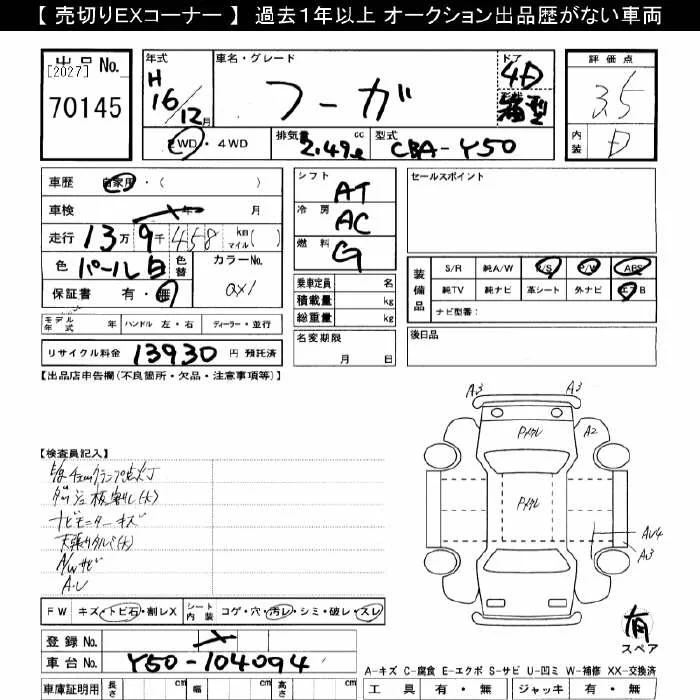 【 売切りEXコーナー 】 過去1年以上 オークション出品歴がない車両
出品 No. 年式 車名・グレード ドア 評価点
[2027] H フーガ 4D 3.5
70145 16/12月 形状 箱型
2WD・4WD 排気量 2.49ℓ cc 型式 CBA-Y50 内装 D
車歴 自家用・( ) シフト AT セールスポイント
車検 年 月 冷房 AC
走行 13万9千458 km マイル( ) 燃料 G
色 パール白 色替 カラーNo. QX1
保証書 有・無
乗車定員 名
積載量 kg
総重量 kg
装備品 S/R 純A/W P/S P/W ABS
純TV 純ナビ 革シート 外ナビ エアB
ナビ型番:
モデル年式 年 ハンドル 左・右 ディーラー・並行
名変期限 月 日 後日品
リサイクル料金 13930 円 預託済
【出品店申告欄(不良箇所・欠品・注意事項等)】
A3 A3
Pメクレ A2
Pメクレ
AU4
AU3
【検査員記入】
ナビモニターキズ
A・U
FW キズ・トビ石・割レX シート内装 コゲ・穴・汚レ・シミ・破レ・スレ
登録 No. 有
車台 No. Y50-104094 スペア
A-キズ C-腐食 E-エクボ S-サビ U-凹ミ W-補修 XX-交換済
車庫証明用 長さ cm 幅 cm 高さ cm 工具 有・無 ジャッキ 有・無